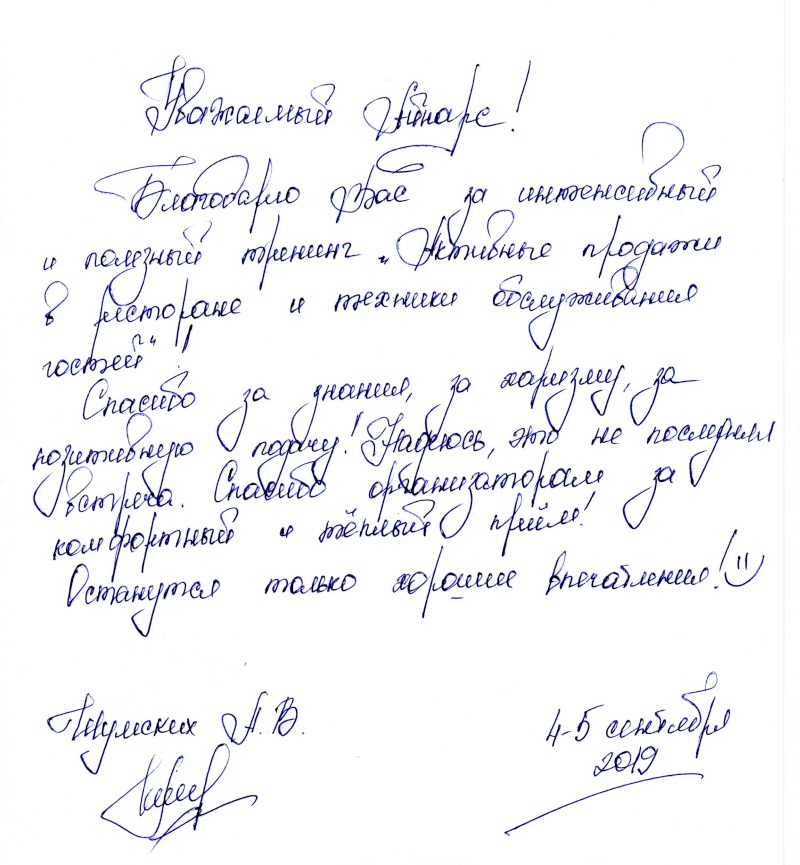 Уважаемый Айнарс!
Благодарю Вас за интенсивный
и полезный тренинг „Активные продажи
в ресторане и техники обслуживания
гостей"!
Спасибо за знания, за харизму, за
позитивную подачу! Надеюсь, это не последняя
встреча. Спасибо организаторам за
комфортный и тёплый приём!
Останутся только хорошие впечатления!
Шумских А.В.
4-5 сентября
2019